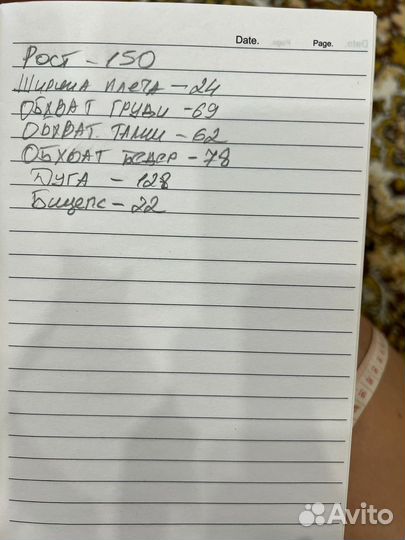 Date. Page.
Рост - 150
Ширина плеча - 24
Обхват груди - 69
Обхват талии - 62
Обхват бедер - 78
Дуга - 128
Бицепс - 22
Avito